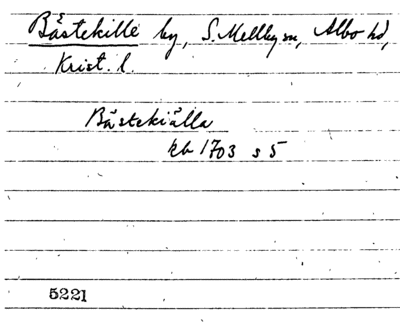 Båstekille by, S. Mellby sn, Albo hd,
Krist. l.
Båstekiälla
kb 1703 s 5
5221